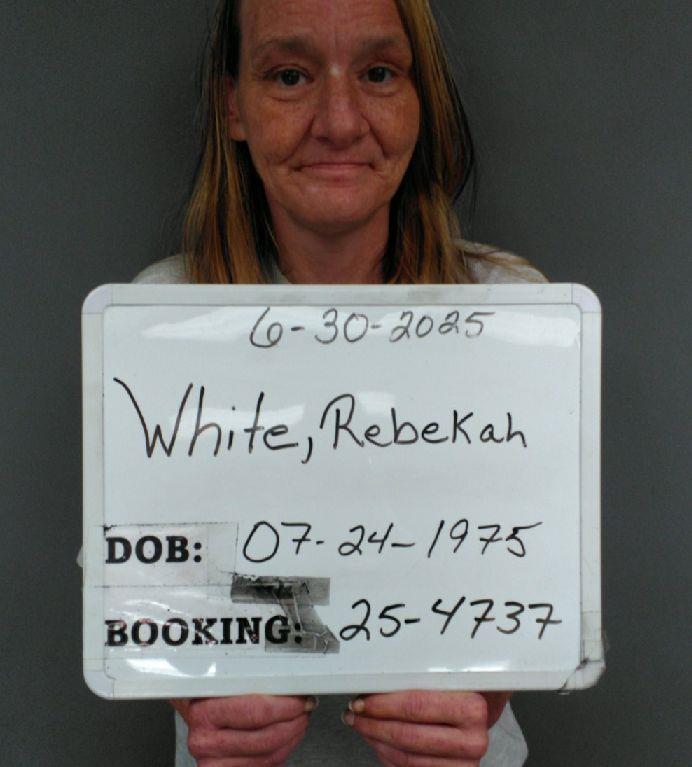 6-30-2025
White, Rebekah
DOB: 07-24-1975
BOOKING: 25-4737